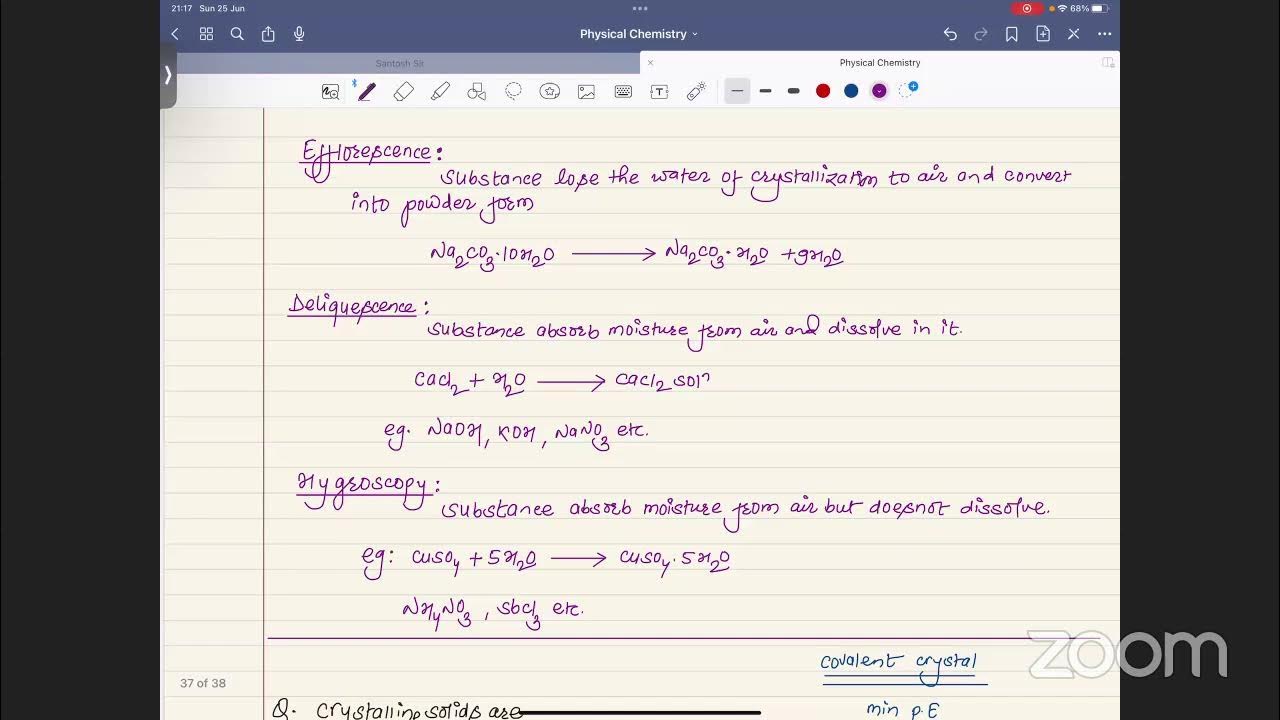 21:17 Sun 25 Jun
68%
Physical Chemistry
Santosh Sir
Physical Chemistry
Efflorescence:
Substance lose the water of crystallization to air and convert
into powder form
Na₂CO₃·10H₂O ⟶ Na₂CO₃·H₂O + 9H₂O
Deliquescence:
Substance absorb moisture from air and dissolve in it.
CaCl₂ + H₂O ⟶ CaCl₂ solⁿ
eg. NaOH, KOH, NaNO₃ etc.
Hygroscopy:
Substance absorb moisture from air but doesnot dissolve.
eg: CuSO₄ + 5H₂O ⟶ CuSO₄·5H₂O
NH₄NO₃, SbCl₃ etc.
zoom
covalent crystal
37 of 38
Q. Crystalline solids are
min P.E